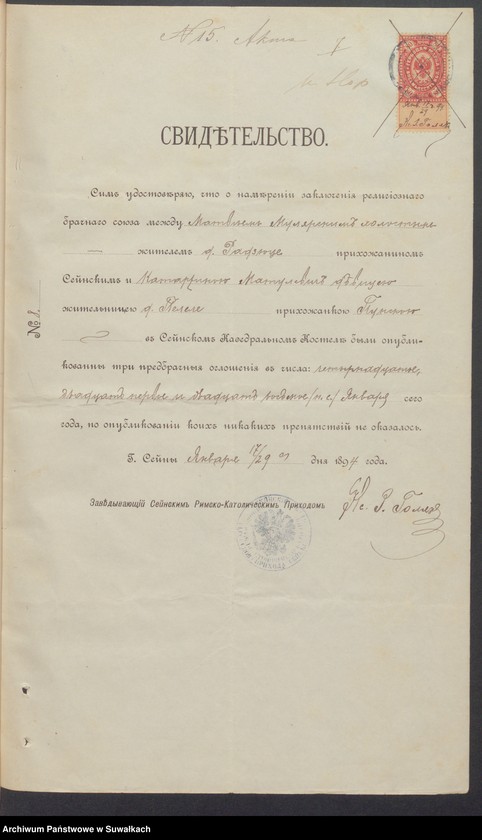 N 15. Акта 7
СВИДѢТЕЛЬСТВО.
Симъ удостовѣряю, что о намѣреніи заключенія религіознаго
брачнаго союза между Матвѣемъ
жителемъ д. прихожаниномъ
Сейнскимъ и дѣвицею
жительницею д. прихожанкою Пунскою
въ Сейнскомъ Каѳедральномъ Костелѣ были опубли-
кованны три предбрачныя оглашенія въ числа: четырнадцатое,
двадцать первое и двадцать восьмое /н. с./ Января сего
года, по опубликованіи коихъ никакихъ препятствій не оказалось.
Г. Сейны Января 17/29 дня 1894 года.
Завѣдывающій Сейнскимъ Римско-Католическимъ Приходомъ Кс.
№ 1.
Archiwum Państwowe w Suwałkach